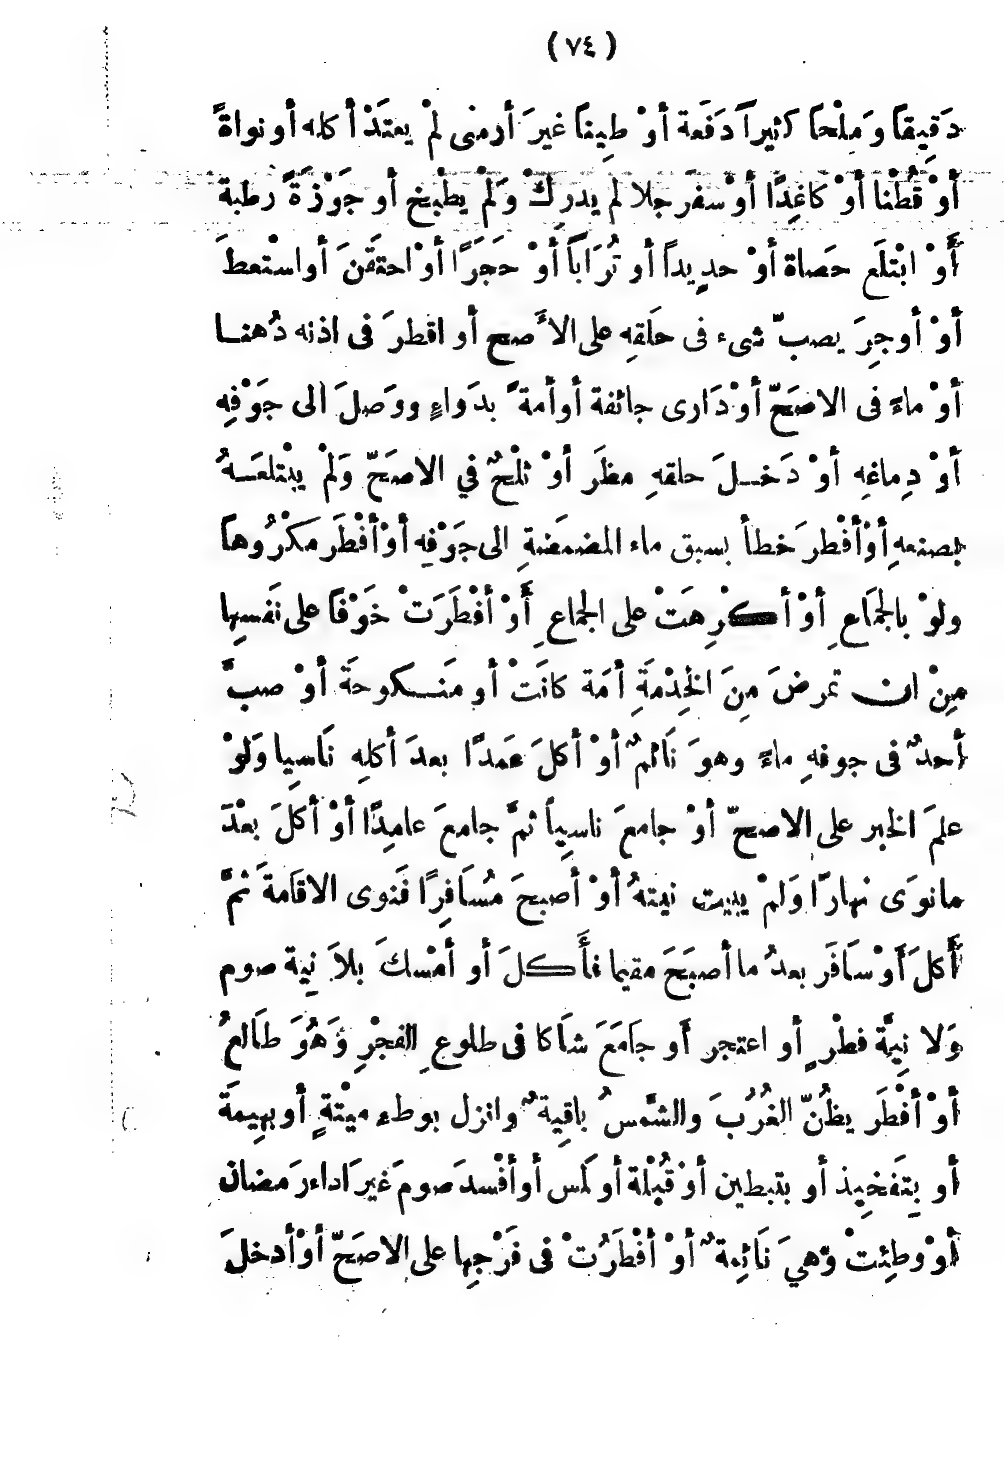 (٧٤)
دَقيقاً وَملْحاً كثيراً دَفَعة أوْ طيِناً غيرَ أرمنى لمْ يعتَدْ أكله أو نواةً
أوْ قُطْنا أوْ كاغِدًا أوْ سفرَجلا لم يدركْ وَلمْ يطْبخ أو جَوْزَةً رطبة
أَوْ ابْتلَع حصَاة أوْ حدِيداً أو تُرَاباً أوْ حَجَرًا أوْ احتقَنَ أو استْعطَ
أوْ أوجِرَ يصبّ شىء فى حَلَقهِ على الأَصح أو اقطرَ فى اذنه دُهنا
أوْ ماءً فى الاصَحّ أوْ دَارى جائفة أو أمةً بدَواءٍ ووَصلَ الى جَوْفِه
أوْ دِماغِه أوْ دَخلَ حلقهِ مطَر أوْ ثلْجٌ في الاصَحّ وَلمْ يبْتلعَهُ
بصنعهِ أوْ أفْطرَ خطأ بسبق ماء المضمَضةِ الى جَوْفِه أوْ أفْطَر مَكْرُوهاً
ولوْ بالجمَاعِ أوْ أكْرِهَتْ على الجماعِ أَوْ أفْطَرَتْ خَوْفاً على نَفسِها
مِنْ ان تمرضَ مِنَ الخِدْمةِ أمَة كانَتْ أو مَنكوحَة أوْ صبَّ
أحدٌ فى جوفهِ ماءً وهوَ نَائمٌ أوْ أكلَ عَمدًا بعدَ أكلهِ نَاسِيا وَلوْ
علمَ الخبر على الاصحّ أوْ جامعَ ناسِياً ثمَّ جامعَ عامِدًا أوْ أكلَ بعْدَ
مانوَى نهارًا وَلمْ يبيت نيتهُ أوْ أصبحَ مُسَافِرًا فَنوى الاقَامةَ ثمَّ
أكلَ أَوْ سَافَر بعدُ ما أصبَحَ مقيما فأَكلَ أو أمْسكَ بلاَ نِية صوم
وَلا نِيَّة فطْرٍ أو اعتجر أَو جَامَعَ شاَكا فى طلوعِ الفجْرِ وَهُوَ طَالعُ
أوْ أفْطَر يظُنّ الغُرُبَ والشَّمسُ باقِيةٌ وانزل بوطء ميْتةٍ أو بهِيمَة
أو بِتَفخِيذ أو بتبطين أوْ قُبْلة أو لَمس أو أفْسدَ صومَ غيرَ اداء رَمضان
أوْ وطِئتْ وَهي نَائِمةٌ أوْ أفْطَرُتْ فى فَرْجِها على الاصَحّ أوْ أدخلَ